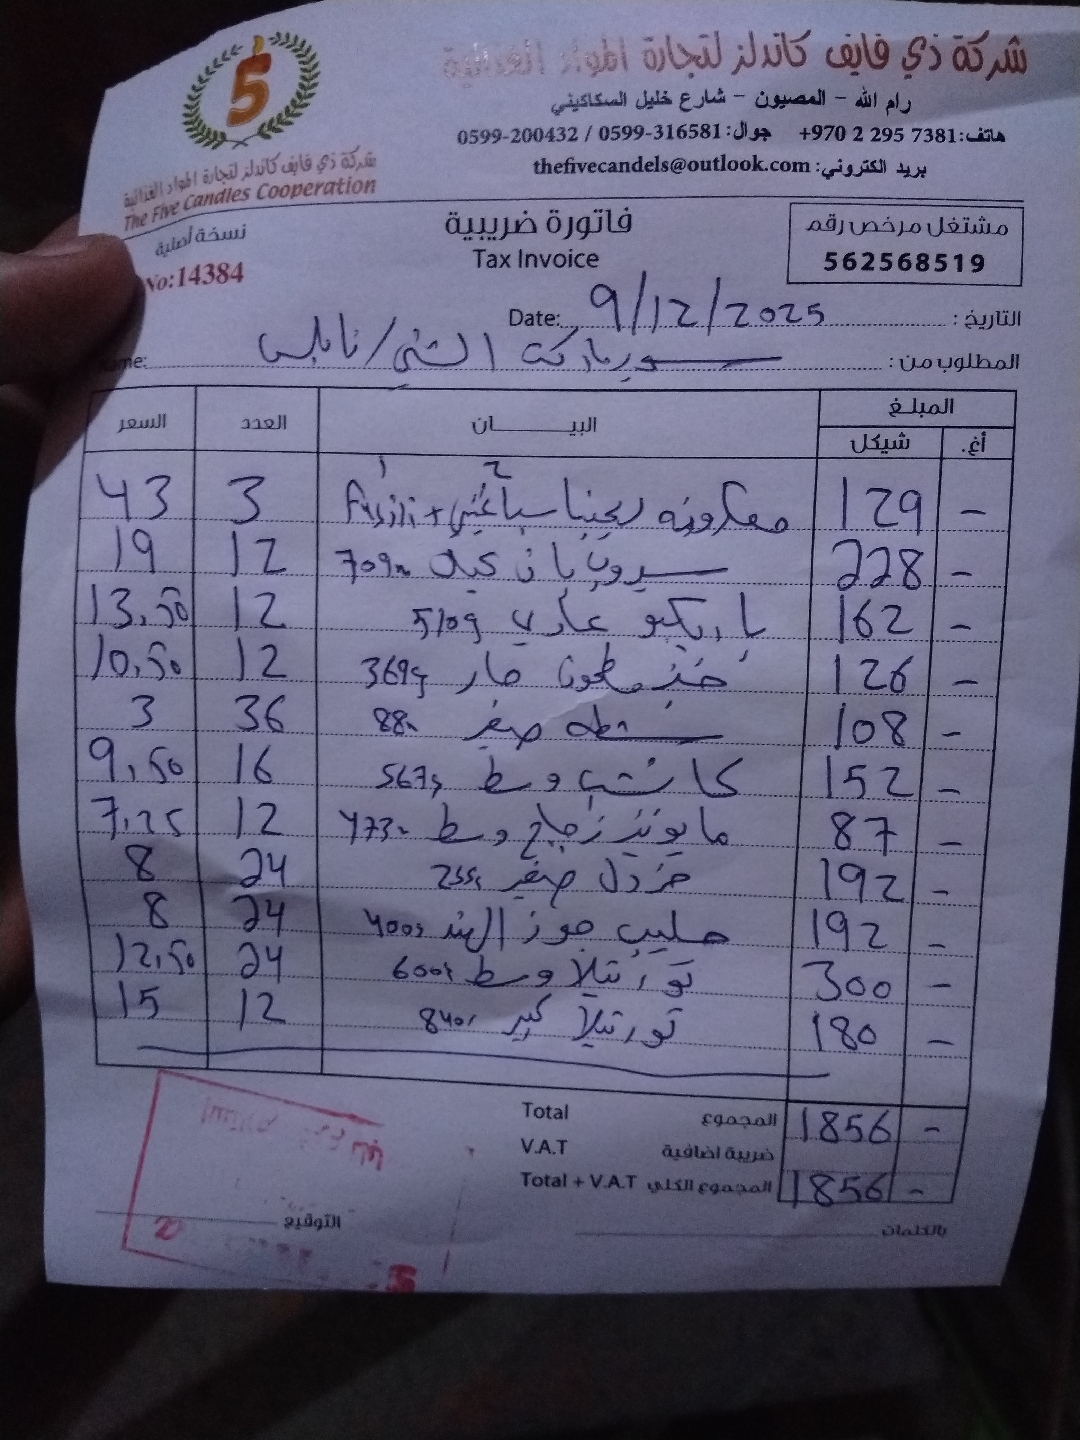 شركة ذي فايف كاندلز لتجارة المواد الغذائية
رام الله - المصيون - شارع خليل السكاكيني
هاتف: +970 2 295 7381 جوال: 0599-316581 / 0599-200432
بريد الكتروني: thefivecandels@outlook.com
5
شركة ذي فايف كاندلز لتجارة المواد الغذائية
The Five Candles Cooperation
نسخة أصلية
No:14384
فاتورة ضريبية
Tax Invoice
مشتغل مرخص رقم
562568519
التاريخ: 9/12/2025 Date:
المطلوب من: سوبرماركت الشني/نابلس
المبلغ البيـــــــان العدد السعر
أغ. شيكل
1 2
- 129 معكرونه ريجينا سباغيتي + Fusilli 3 43
- 228 سيروب بان كيك 709 12 19
- 162 باربكيو عادي 510g 12 13,50
- 126 حار 369g 12 10,50
- 108 شطه صغير 88 36 3
- 152 كاتشب وسط 567g 16 9,50
- 87 مايونيز زجاج وسط 473 12 7,25
- 192 خردل صغير 255g 24 8
- 192 حليب جوز الهند 400 24 8
- 300 تورتيلا وسط 600g 24 12,50
- 180 تورتيلا كبير 840 12 15
Total المجموع 1856 -
V.A.T ضريبة اضافية
Total + V.A.T المجموع الكلي 1856 -
التوقيع
بالكلمات